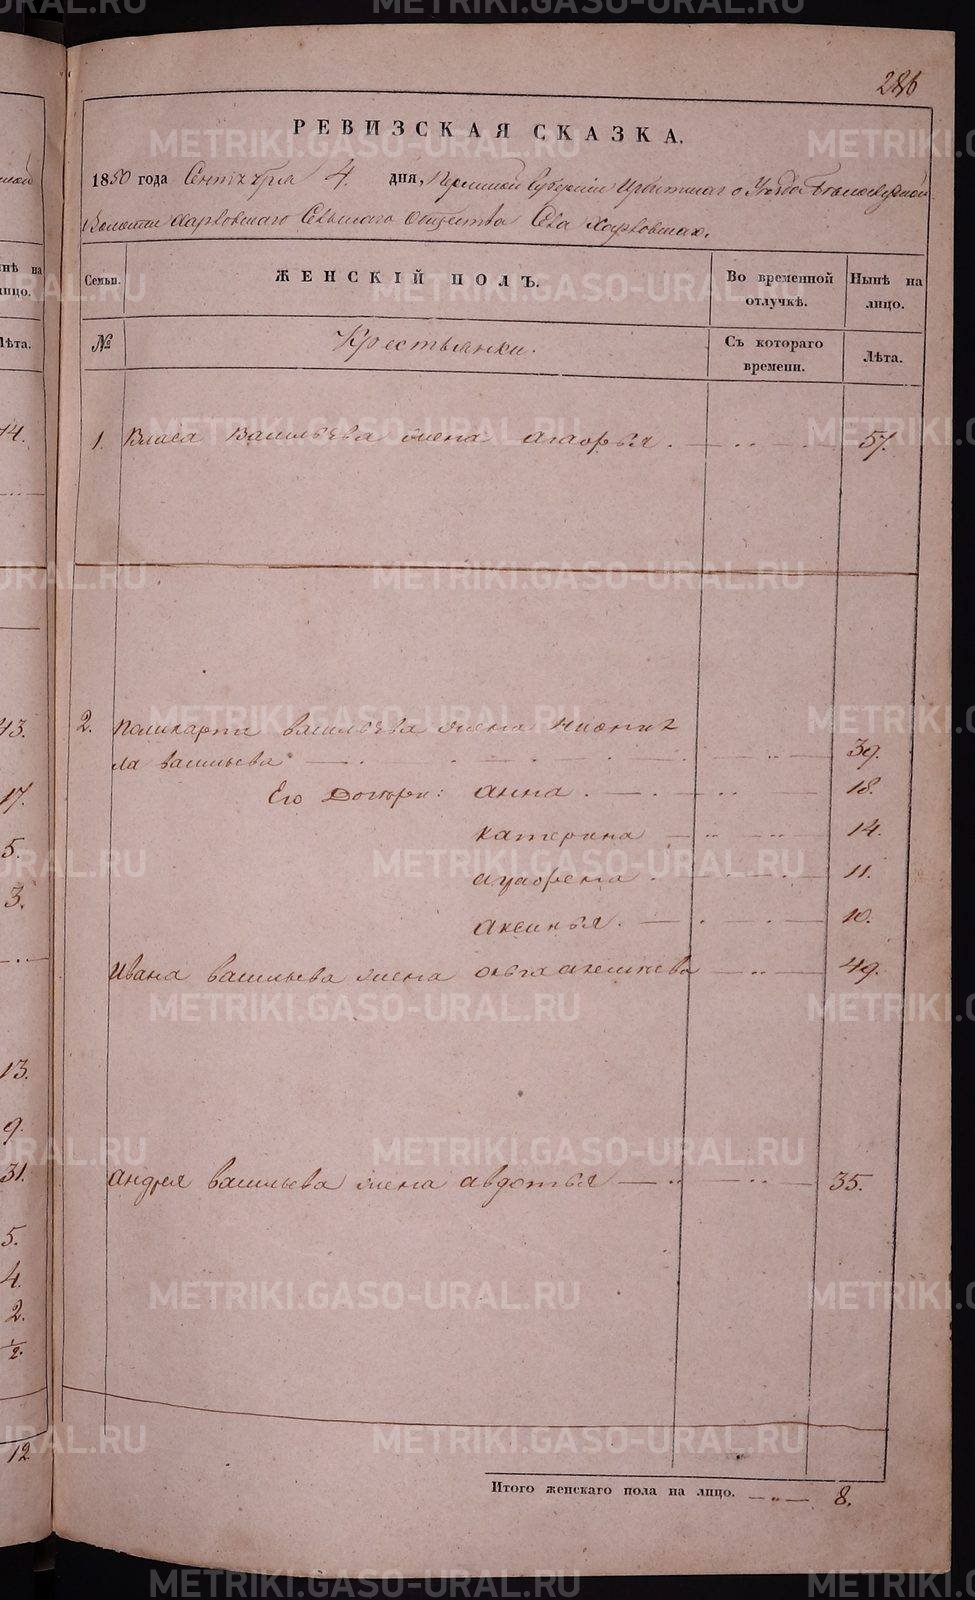 286
РЕВИЗСКАЯ СКАЗКА.
1850 года Сентября 4. дня, Пермской Губернии Ирбитскаго Уезда Белослудской
Волости Харловскаго Сельскаго Общества Села Харловскаго.
Семьи. ЖЕНСКІЙ ПОЛЪ. Во временной отлучкѣ. Нынѣ на лицо.
№ Крестьянки. Съ котораго времени. Лѣта.
1. Власа Васильева жена 57.
2. Поликарпа васильева жена
ла васильева 39.
Его Дочери: анна 18.
катерина 14.
11.
аксинья 10.
Ивана васильева жена 49.
андрея васильева жена авдотья 35.
Итого женскаго пола на лицо. 8.
нѣ на
ицо.
Лѣта.
14.
43.
17.
5.
3.
13.
9.
31.
5.
4.
2.
1/2
12
METRIKI.GASO-URAL.RU